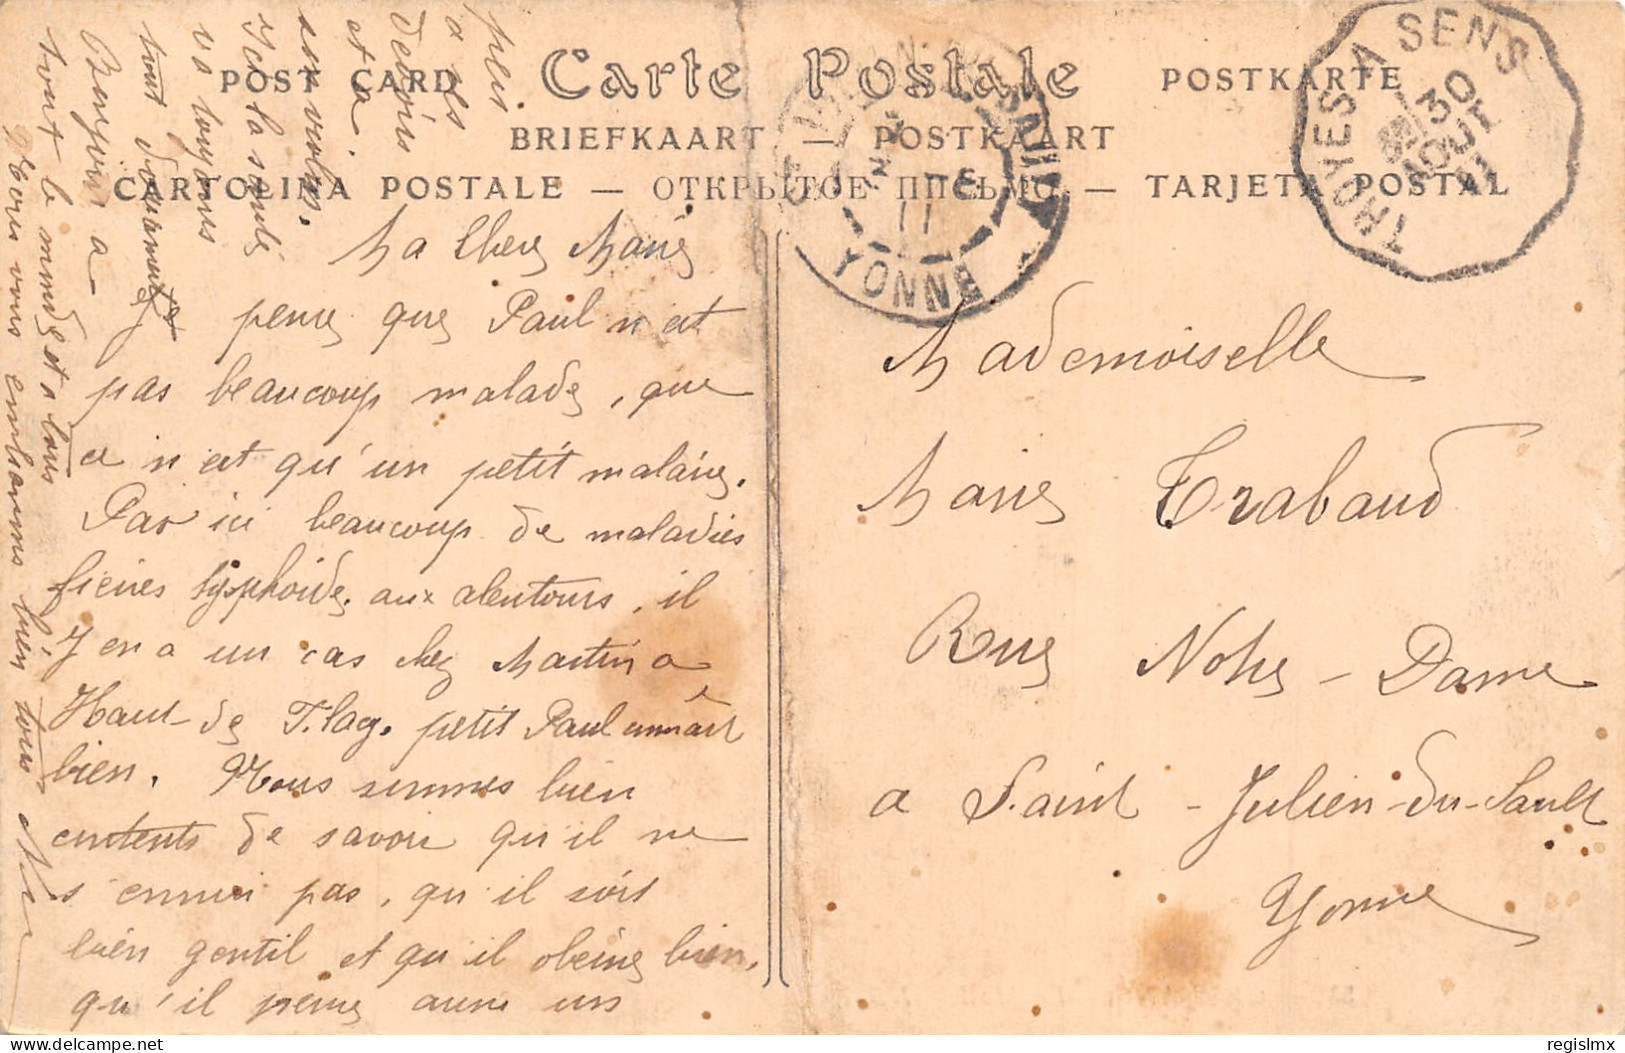 POST CARD Carte Postale POSTKARTE
BRIEFKAART — POSTKAART
CARTOLINA POSTALE — ОТКРЫТОЕ ПИСЬМО — TARJETA POSTAL
TROYES A SENS
30
AOUT
11
11
YONNE
Ma Chere Marie
Je pense que Paul n'est
pas beaucoup malade, que
ce n'est qu'un petit malaise.
Par ici beaucoup de maladies
fievres typhoide, aux alentours, il
y en a un cas chez Martin a
Haut-de Flacy. petit Paul connait
bien. Nous sommes bien
contents de savoir qu'il ne
s'ennui pas, qu'il soit
bien gentil et qu'il obeisse bien,
qu'il pense aussi un
plus
a ses
devoirs
et a
ses violons.
Ici la santé
va toujours
tout doucement
Bonjour a
tout le monde et a tous
Nous vous embrassons bien tous
Mademoiselle
Marie Trabaud
Rue Notre-Dame
a Saint-Julien-du-Sault
Yonne
regislmx
delcampe.net